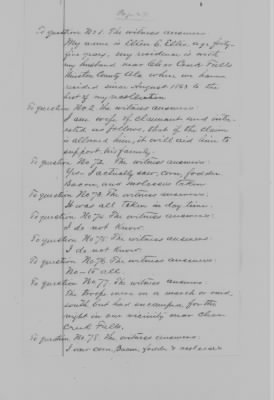 Page 27
To question No 1. The witness answers
My name is Ellen C. Ellis, age forty-
five years, my residence is with
my husband near Clear Creek Falls
Winston County Ala where we have
resided since August 1863 to the
best of my recollection
To question No 2. The witness answers:
I am wife of claimant and inter-
ested as follows, that if the claim
is allowed him, it will aid him to
support his family.
To question No 72. The witness answers:
Yes. I actually saw, corn, fodder
Bacon, and molasses taken
To question No 73. The witness answers:
It was all taken in day time.
To question No 74. The witness answers:
I do not know.
To question No 75. The witness answers
I do not know.
To question No 76. The witness answers:
No - to all.
To question No 77. The witness answers
The troops were on a march or raid,
south but had encamped for the
night in our vicinity near Clear
Creek Falls.
To question No 78. The witness answers:
I saw corn, Bacon, fodder & molasses